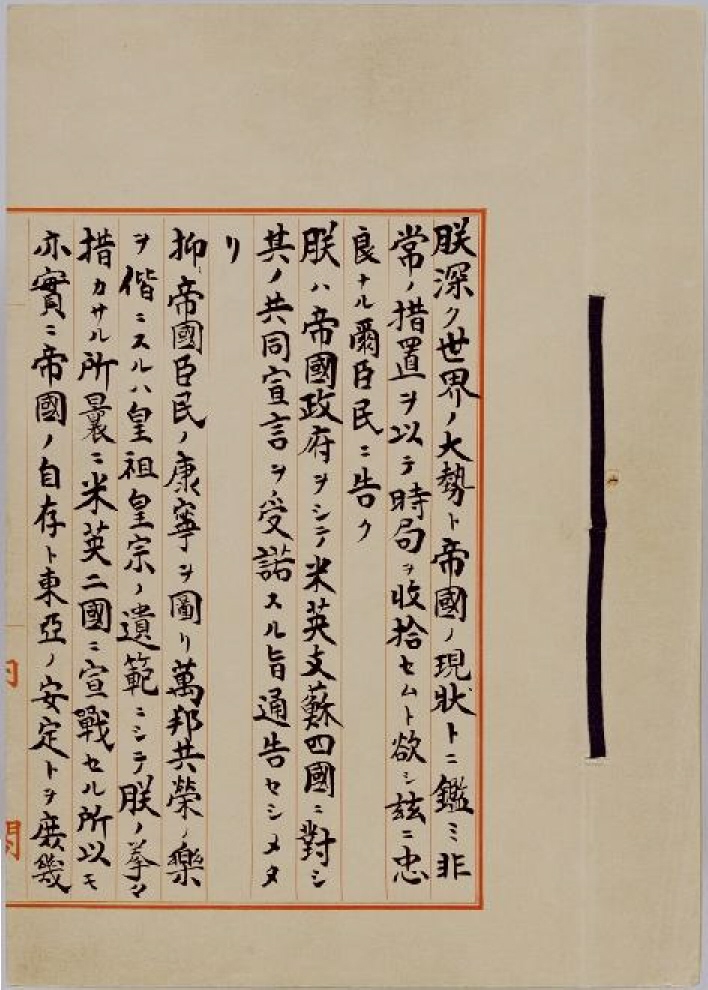 朕深ク世界ノ大勢ト帝國ノ現狀トニ鑑ミ非
常ノ措置ヲ以テ時局ヲ收拾セムト欲シ茲ニ忠
良ナル爾臣民ニ告ク
朕ハ帝國政府ヲシテ米英支蘇四國ニ對シ
其ノ共同宣言ヲ受諾スル旨通告セシメタ
リ
抑〻帝國臣民ノ康寧ヲ圖リ萬邦共榮ノ樂
ヲ偕ニスルハ皇祖皇宗ノ遺範ニシテ朕ノ拳〻
措カサル所曩ニ米英二國ニ宣戰セル所以モ
亦實ニ帝國ノ自存ト東亞ノ安定トヲ庶幾
内
閣